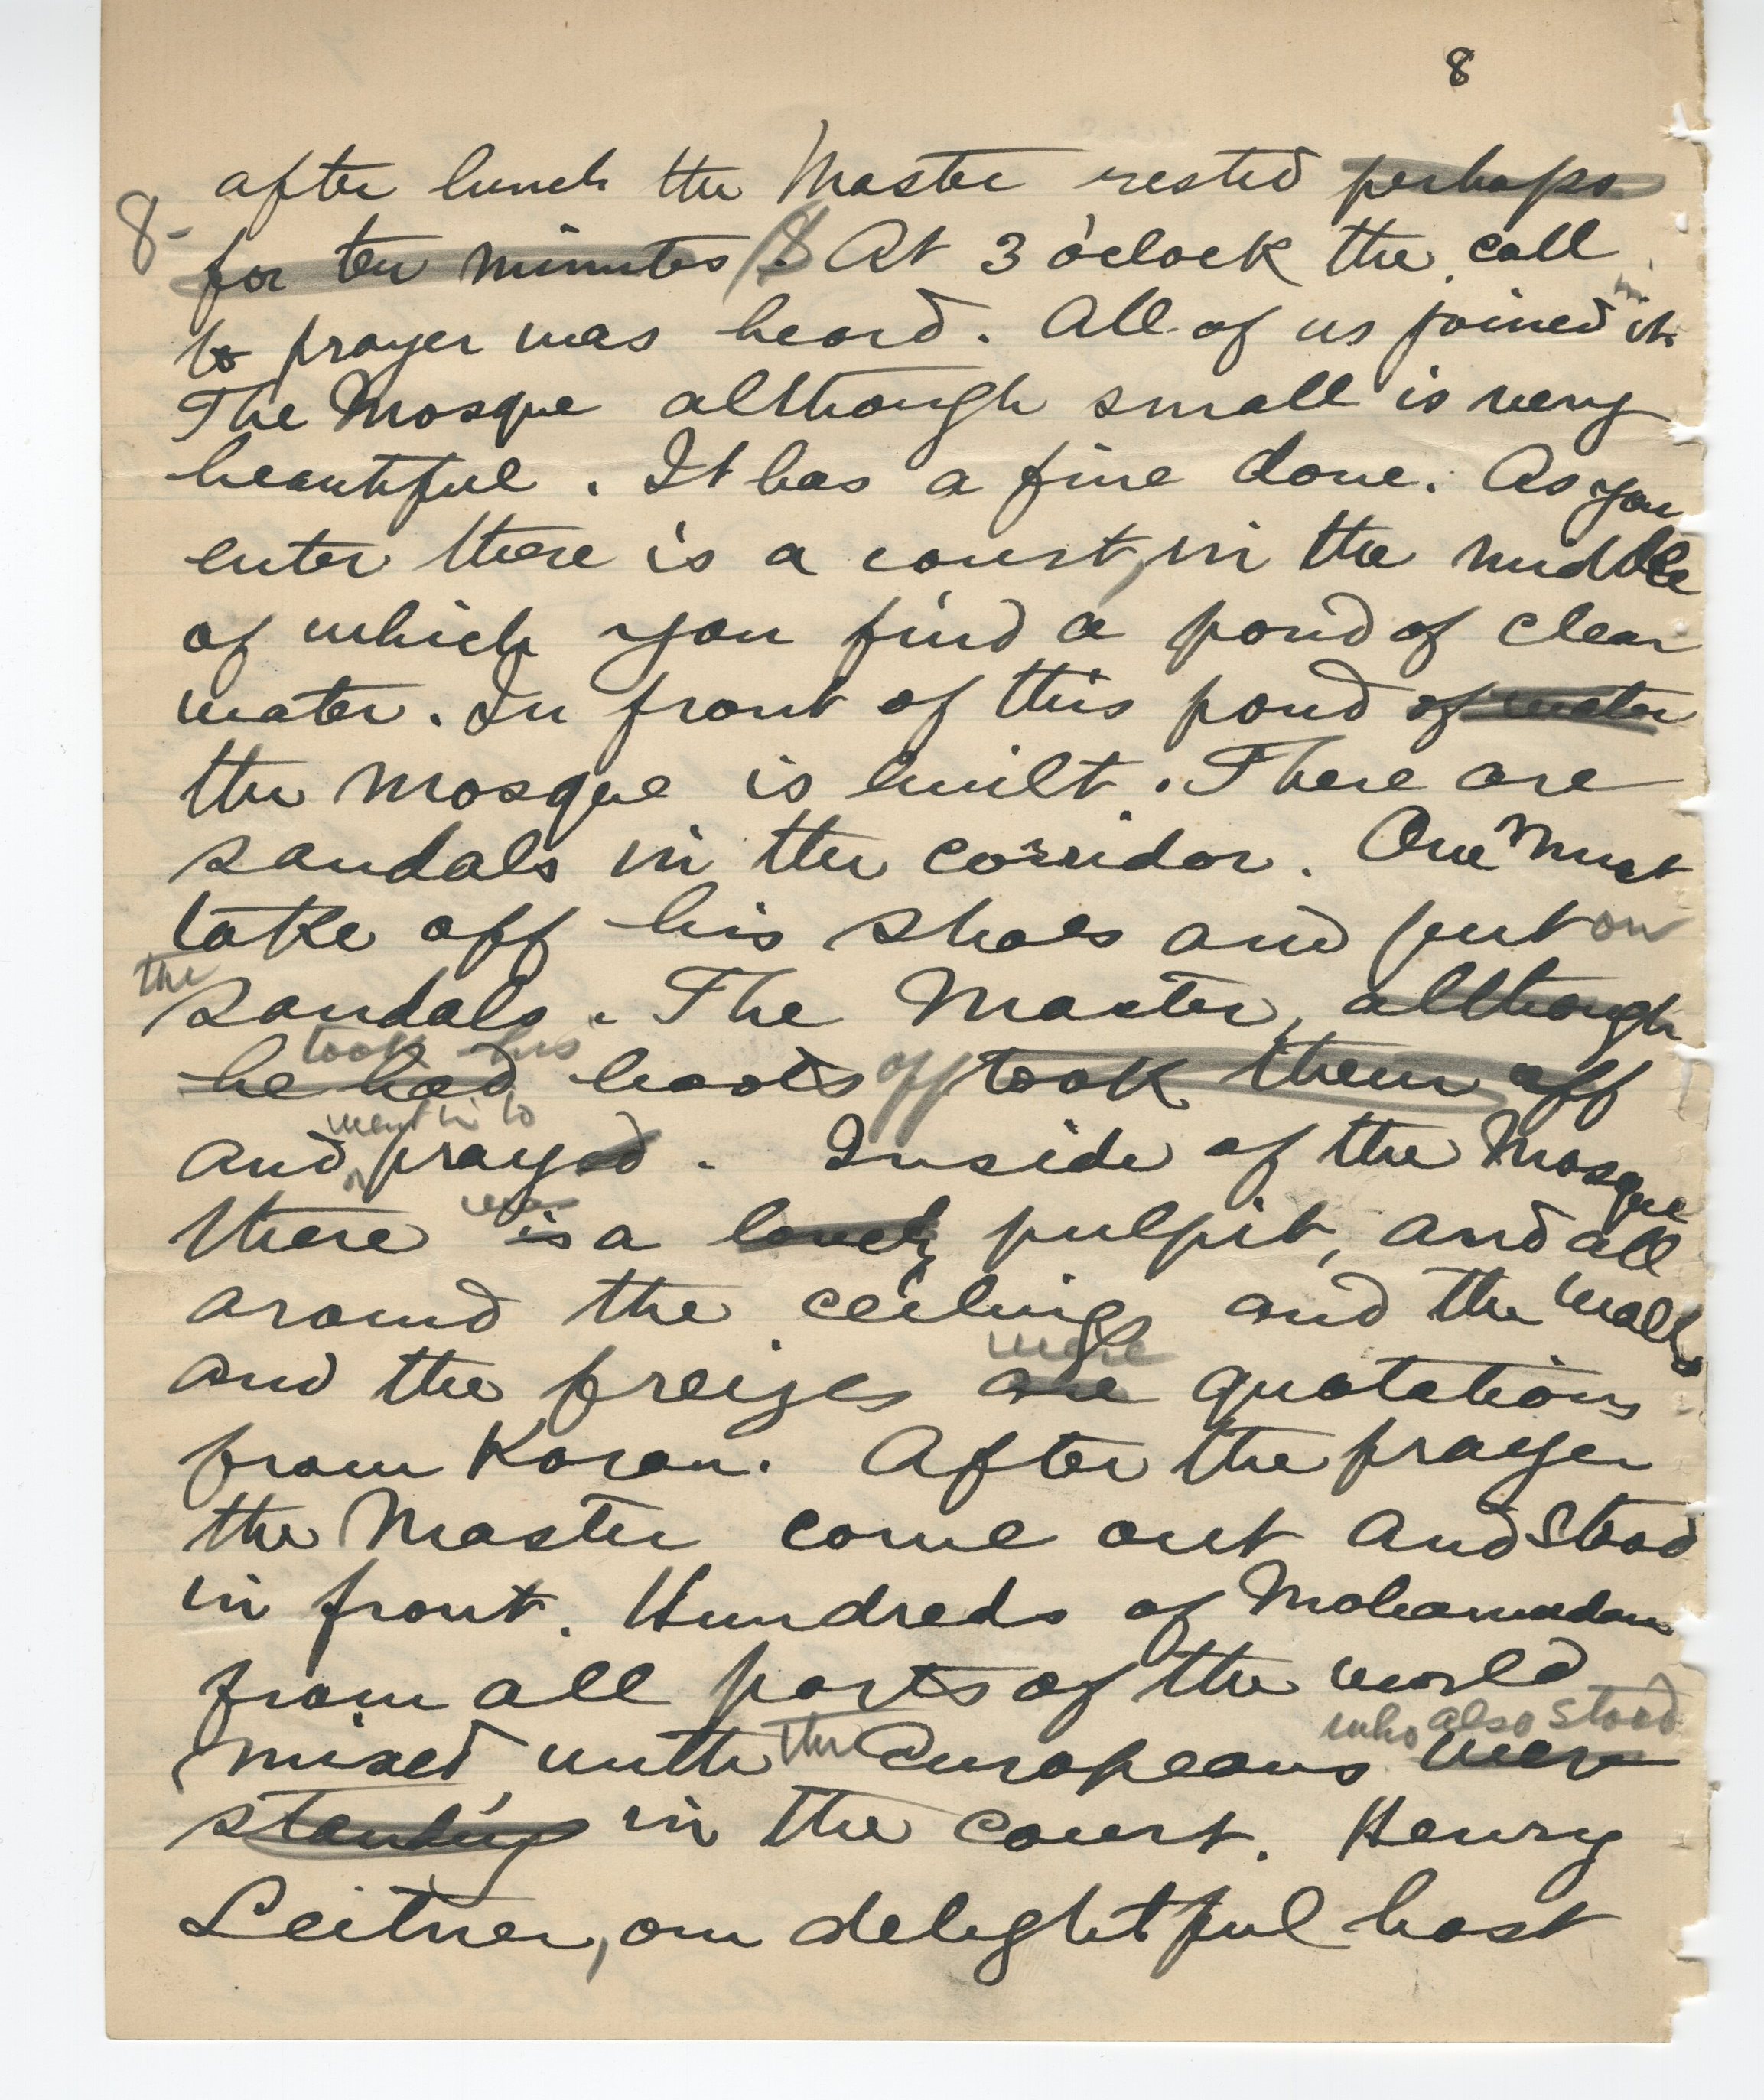 8
after lunch the Master rested perhaps
8-
for ten minutes. 8 At 3 o'clock the call
in
to prayer was heard. All of us joined it.
The Mosque although small is very
beautiful. It has a fine dome. As you
enter there is a court, in the middle
of which you find a pond of clear
water. In front of this pond of water
the mosque is built. There are
sandals in the corridor. One must
take off his shoes and put on
the
sandals. The Master, although
took his
he had boots off took them off
went in to
and prayed. Inside of the Mosque
was
there is a lovely pulpit, and all
around the ceiling and the walls
were
and the freizes are quotations
from Koran. After the prayer
the Master come out and stood
in front. Hundreds of Mohamedans
from all parts of the world
who also stood
mixed with the Europeans were
standing in the court. Henry
Leitner, our delightful host